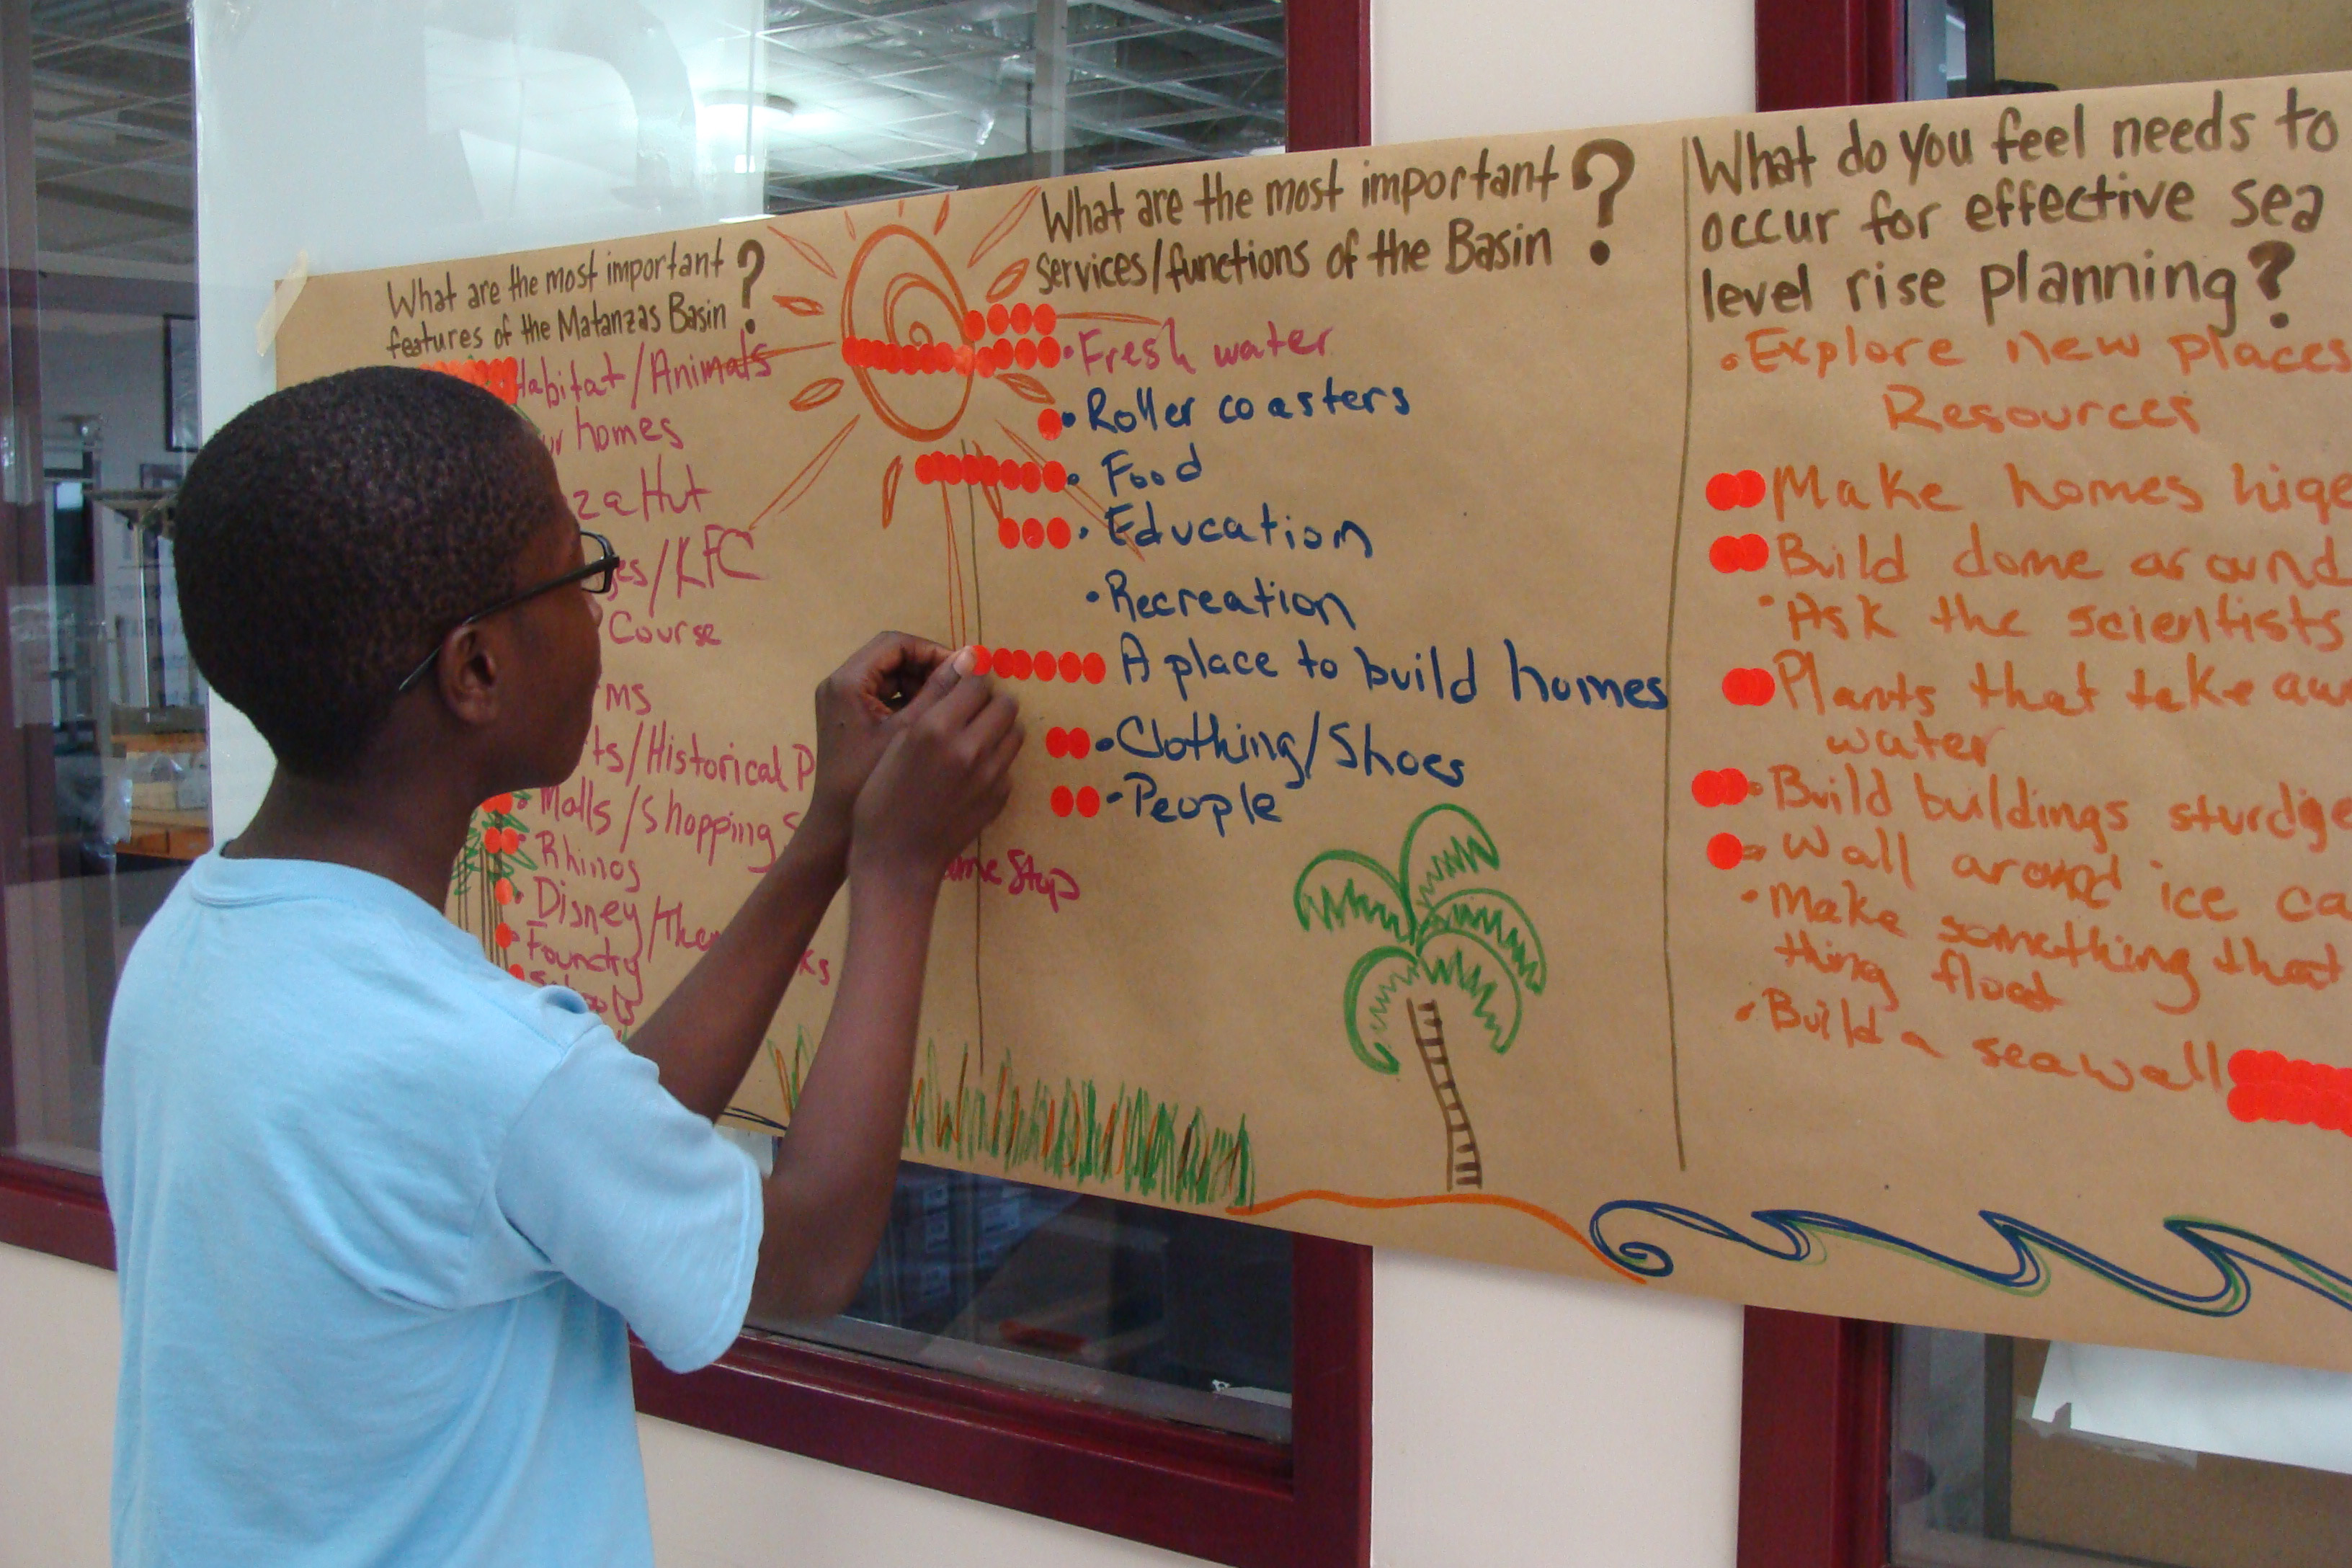 What are the most important ?
features of the Matanzas Basin
Habitat/Animals
homes
Hut
/KFC
Course
/Historical
Malls/Shopping
Rhinos
Disney/
Foundry
Schools
What are the most important ?
services/functions of the Basin
• Fresh water
• Roller coasters
• Food
• Education
• Recreation
A place to build homes
• Clothing/Shoes
• People
Stop
What do you feel needs to
occur for effective sea
level rise planning?
• Explore new places
Resources
Make homes
Build dome around
• Ask the scientists
Plants that take
water
• Build buildings
Wall around ice
• Make something that
thing flood
• Build a seawall